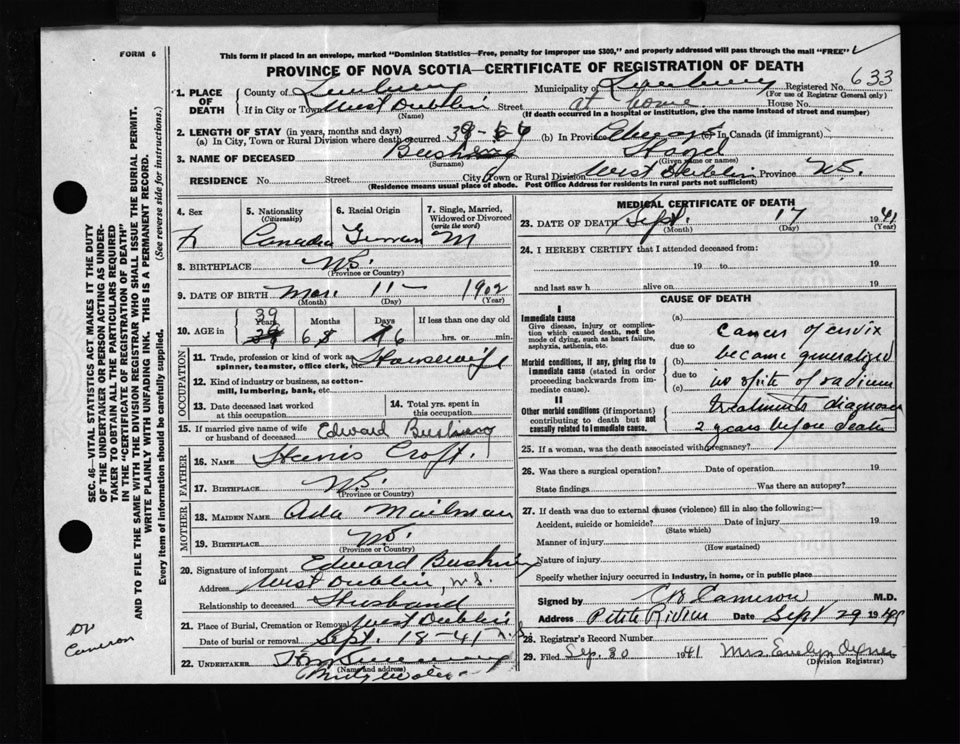 FORM 6
This form if placed in an envelope, marked "Dominion Statistics—Free, penalty for improper use $300," and properly addressed will pass through the mail "FREE"
PROVINCE OF NOVA SCOTIA—CERTIFICATE OF REGISTRATION OF DEATH
1. PLACE OF DEATH County of Lunenburg Municipality of Lunenburg Registered No. 633
(For use of Registrar General only)
If in City or Town West Dublin Street at home House No.
(Name) (If death occurred in a hospital or institution, give the name instead of street and number)
2. LENGTH OF STAY (in years, months and days)
(a) In City, Town or Rural Division where death occurred 39-6-6 (b) In Province Always (c) In Canada (if immigrant)
3. NAME OF DECEASED Bushing Hazel
(Surname) (Given name or names)
RESIDENCE No. Street City, Town or Rural Division West Dublin Province N.S.
(Residence means usual place of abode. Post Office Address for residents in rural parts not sufficient)
4. Sex 5. Nationality (Citizenship) 6. Racial Origin 7. Single, Married, Widowed or Divorced (write the word)
F Canadia German M
8. BIRTHPLACE N.S.
(Province or Country)
9. DATE OF BIRTH Mar 11 1902
(Month) (Day) (Year)
10. AGE in 39 Years 6 Months 6 Days If less than one day old
hrs. or min.
OCCUPATION
11. Trade, profession or kind of work as spinner, teamster, office clerk, etc. Housewife
12. Kind of industry or business, as cotton-mill, lumbering, bank, etc.
13. Date deceased last worked at this occupation
14. Total yrs. spent in this occupation
15. If married give name of wife or husband of deceased Edward Bushing
FATHER
16. NAME Croft
17. BIRTHPLACE N.S.
(Province or Country)
MOTHER
18. MAIDEN NAME Ada Mailman
19. BIRTHPLACE N.S.
(Province or Country)
20. Signature of informant Edward Bushing
Address West Dublin, N.S.
Relationship to deceased Husband
21. Place of Burial, Cremation or Removal West Dublin N.S.
Date of burial or removal Sept. 18-41
22. UNDERTAKER
(Name and address)
MEDICAL CERTIFICATE OF DEATH
23. DATE OF DEATH Sept. 17 1941
(Month) (Day) (Year)
24. I HEREBY CERTIFY that I attended deceased from:
19 to 19
and last saw h alive on 19
CAUSE OF DEATH
I
Immediate cause
Give disease, injury or complication which caused death, not the mode of dying, such as heart failure, asphyxia, asthenia, etc.
Morbid conditions, if any, giving rise to immediate cause (stated in order proceeding backwards from immediate cause).
II
Other morbid conditions (if important) contributing to death but not causally related to immediate cause.
(a)
due to Cancer of cervix
(b) became generalized
due to
(c) in spite of radium
treatments diagnosed
2 years before death
25. If a woman, was the death associated with pregnancy?
26. Was there a surgical operation? Date of operation 19
State findings Was there an autopsy?
27. If death was due to external causes (violence) fill in also the following:—
Accident, suicide or homicide? Date of injury 19
(State which)
Manner of injury
(How sustained)
Nature of injury
Specify whether injury occurred in industry, in home, or in public place
Signed by Cameron M.D.
Address Petite Riviere Date Sept 29 19
28. Registrar's Record Number
29. Filed Sep. 30 1941 Mrs. Evelyn
(Division Registrar)
SEC. 46—VITAL STATISTICS ACT MAKES IT THE DUTY
OF THE UNDERTAKER OR PERSON ACTING AS UNDER-
TAKER TO OBTAIN ALL THE PARTICULARS REQUIRED
IN THE "CERTIFICATE OF REGISTRATION OF DEATH"
AND TO FILE THE SAME WITH THE DIVISION REGISTRAR WHO SHALL ISSUE THE BURIAL PERMIT.
WRITE PLAINLY WITH UNFADING INK. THIS IS A PERMANENT RECORD.
Every item of information should be carefully supplied. (See reverse side for instructions.)
Dr
Cameron